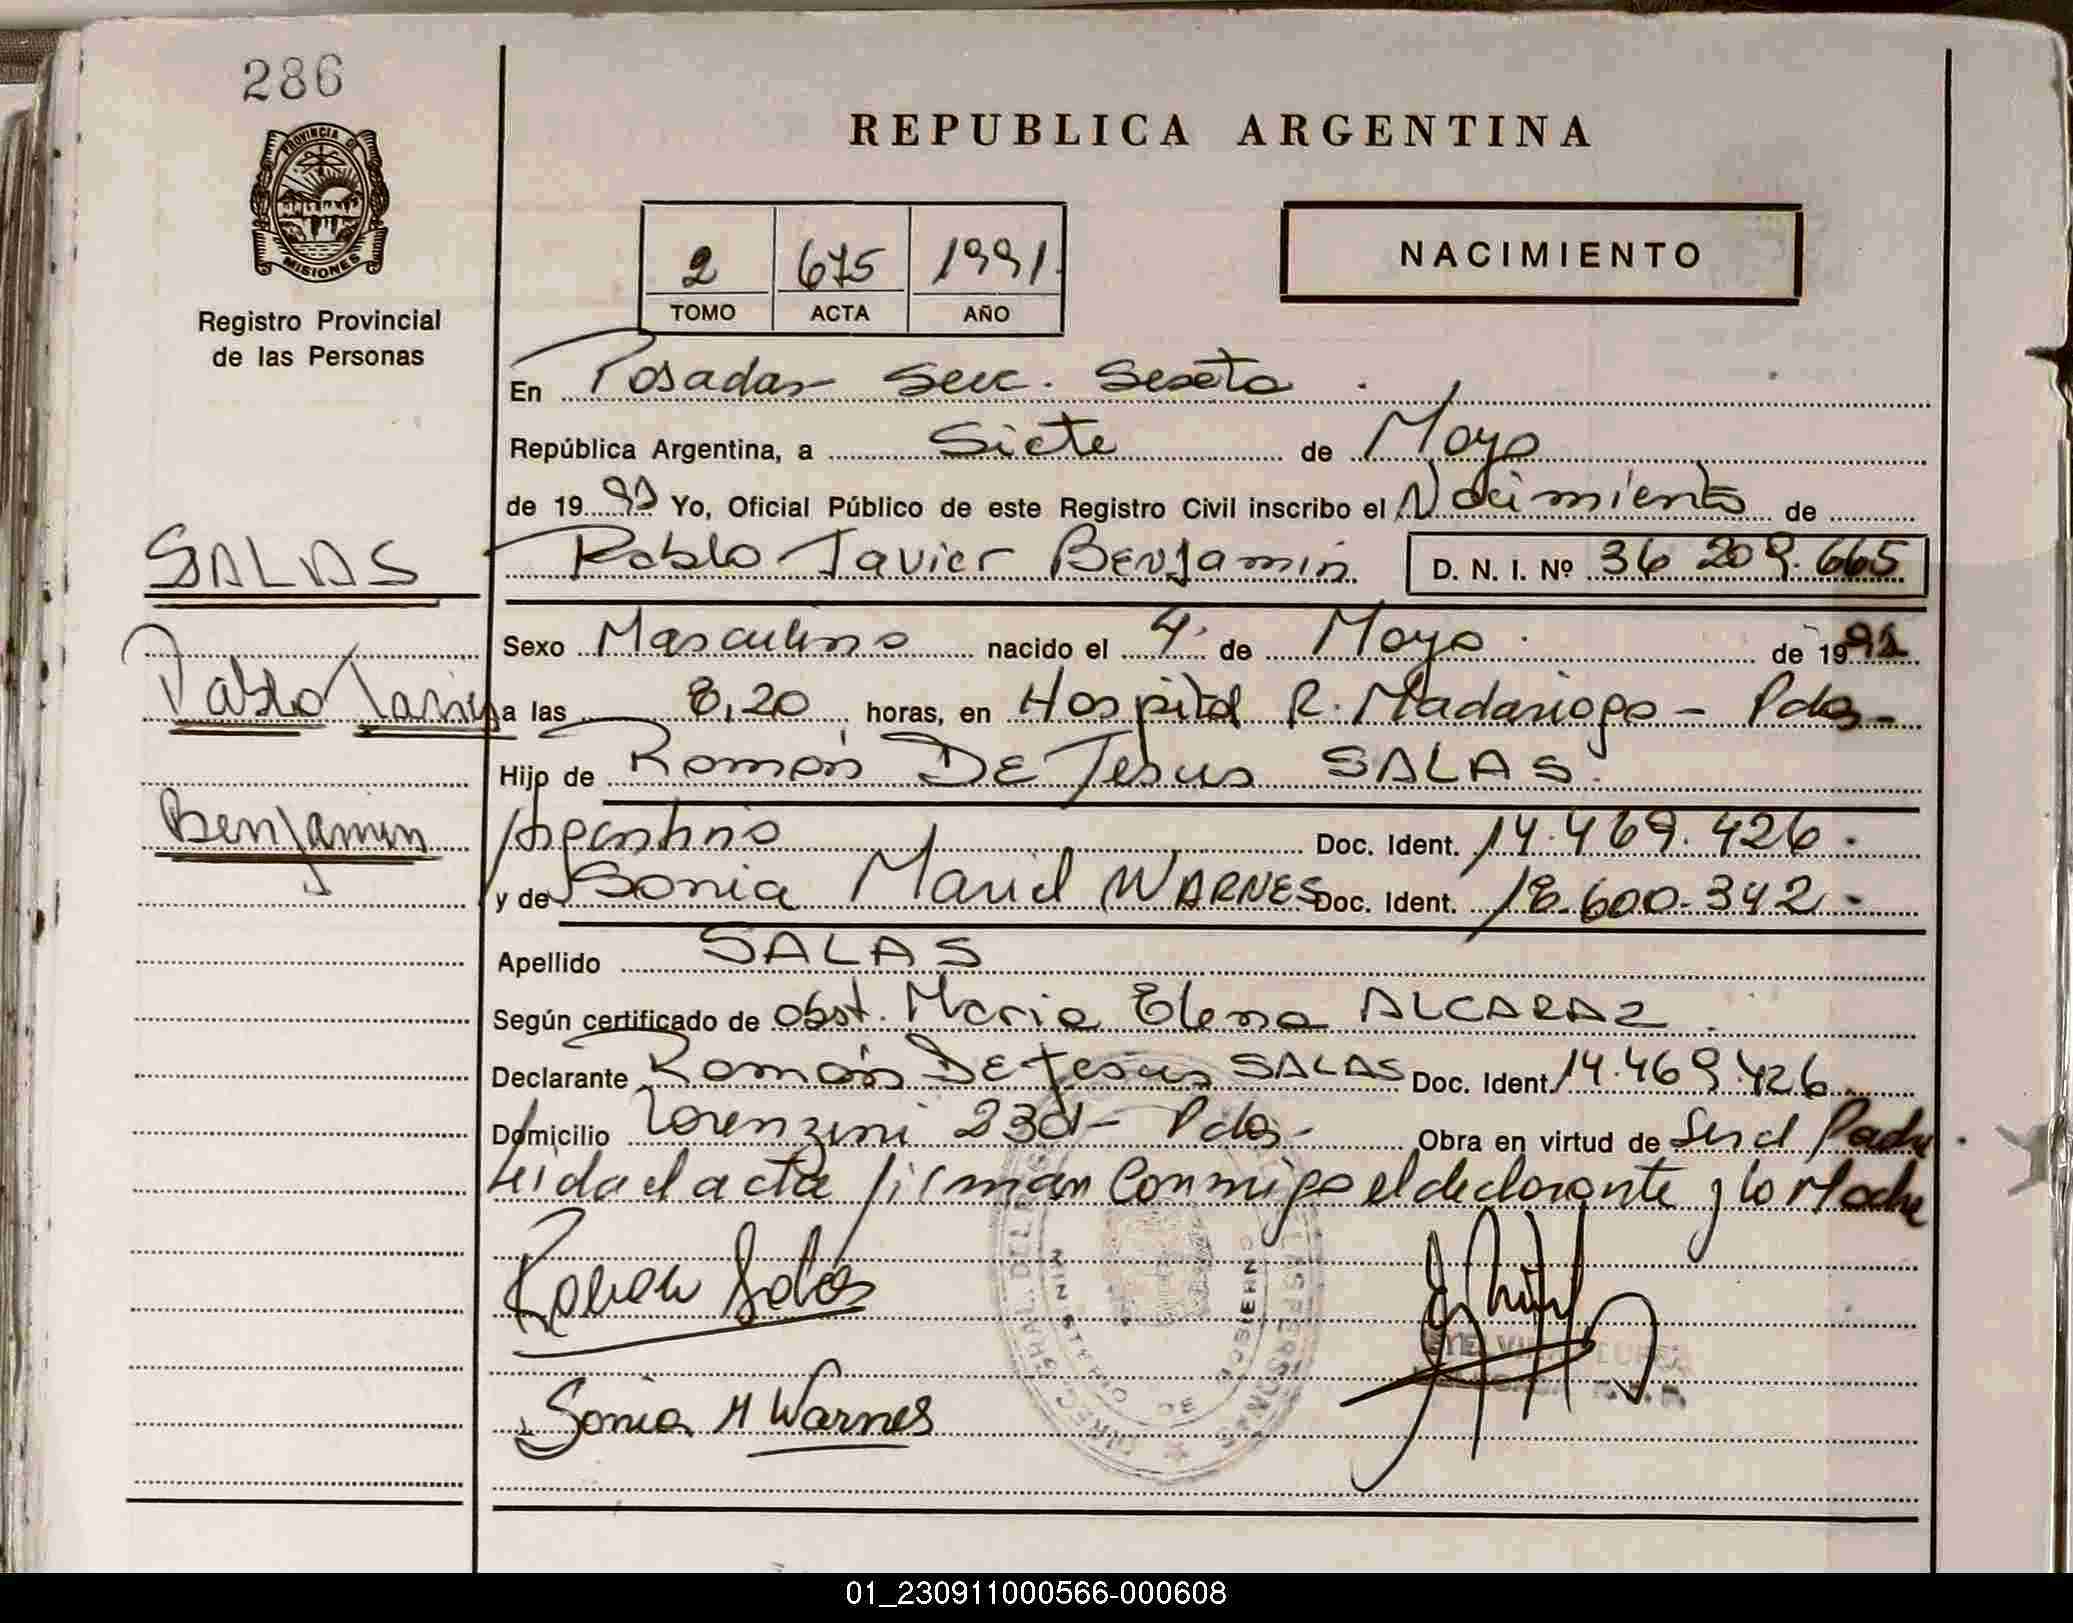 286
PROVINCIA DE
MISIONES
Registro Provincial
de las Personas
REPUBLICA ARGENTINA
2 675 1991
TOMO ACTA AÑO
NACIMIENTO
En Posadas Secc. Sexta
República Argentina, a Siete de Mayo
de 19 91 Yo, Oficial Público de este Registro Civil inscribo el Nacimiento de
SALAS
Pablo Javier Benjamin D. N. I. Nº 36 209.665
Sexo Masculino nacido el 4 de Mayo de 1991
Pablo Javier
a las 8,20 horas, en Hospital R. Madariaga - Pdas -
Hijo de Román De Jesus SALAS
Benjamin
Argentino Doc. Ident. 14.469.426.
y de Sonia Mariel WARNES Doc. Ident. 18.600.342 -
Apellido SALAS
Según certificado de obst. Maria Elena ALCARAZ
Declarante Román De Jesus SALAS Doc. Ident. 14.469.426
Domicilio Lorenzini - Pdas - Obra en virtud de Ser el Padre
Leida el acta firman conmigo el declarante y la Madre
Salas
Sonia M Warnes
MINISTERIO DE GOBIERNO
LAS PERSONAS
01_230911000566-000608